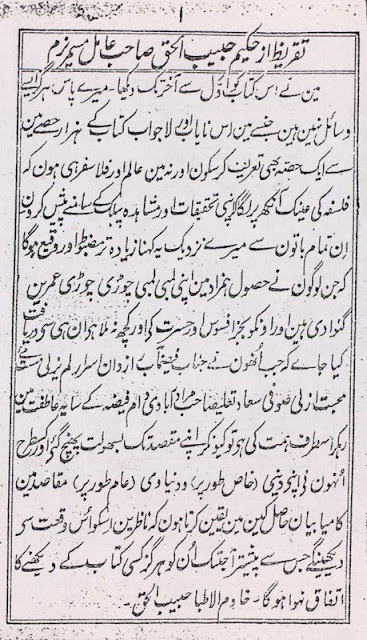 ۱
تقریظ از حکیم حبیب الحق صاحب عامل مسمریزم
مین نے اس کتاب کو اوّل سے آخر تک دیکھا۔ میرے پاس ہرگز ایسے
وسائل نہین ہین جنسے مین اس نایاب اور لاجواب کتاب کے ہزار حصے مین
سے ایک حصہ بھی تعریف کر سکون اور نہ مین عالم اور فلاسفر ہی ہون کہ
فلسفہ کی عینک آنکھ پر لگا کر اپنی تحقیقات اور مشاہدہ پبلک کے سامنے پیش کرون
اِن تمام باتون سے میرے نزدیک یہ کہنا زیادہ تر مضبوط اور وقیع ہوگا
کہ جن لوگون نے حصول ہمزاد مین اپنی لمبی لمبی چوڑی چوڑی عمرین
گنوا دی ہین اور اونکو بجز افسوس اور حسرت کی اور کچھ نہ ملا ہو ان ہی سی دریافت
کیا جاے کہ جب اُنھون نے جناب فیضمآب رازدان اسرار لم یزلی مست مئے
محبت ازلی صوفی سعادت علیصاحب مرادآبادی دام فیضہ کے سایہ عاطفت مین
رہکر اسطرف ہمت کی ہو تو کیونکر اپنے مقصد تک بسہولت پہنچ گئے اور کسطرح
اُنہون نی اپنی دینی (خاص طور پر) و دنیاوی (عام طور پر) مقاصد مین
کامیابیان حاصل کین مین یقین کرتا ہون کہ ناظرین اسکو اُس وقعت سے
دیکھینگے جس سے پیشتر آجتک اُن کو ہرگز کسی کتاب کے دیکھنے کا
اتفاق نہوا ہوگا۔ خادم الاطبا حبیب الحق۔